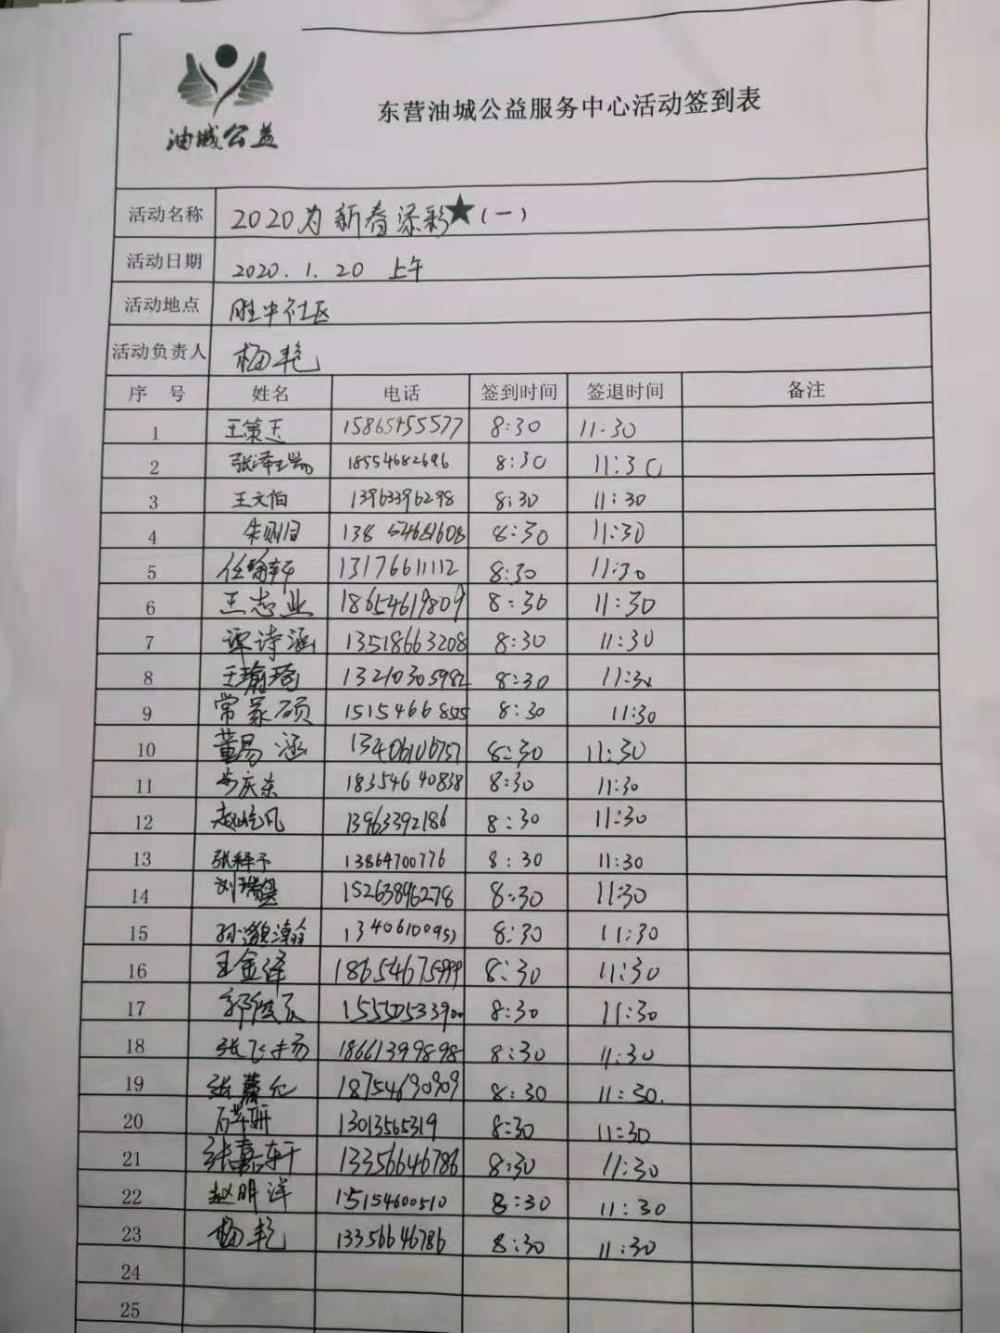 油城公益
东营油城公益服务中心活动签到表
活动名称 2020为新春添彩★(一)
活动日期 2020.1.20 上午
活动地点 胜中社区
活动负责人 杨艳
序 号 姓名 电话 签到时间 签退时间 备注
1 王策玉 15865455577 8:30 11:30
2 18554682696 8:30 11:30
3 王文伯 13963396298 8:30 11:30
4 13854681608 8:30 11:30
5 13176611112 8:30 11:30
6 王志业 18654619809 8:30 11:30
7 谭诗涵 13518663208 8:30 11:30
8 王瑜琦 13210305982 8:30 11:30
9 8:30 11:30
10 董易涵 13406106757 8:30 11:30
11 18354640838 8:30 11:30
12 赵屹凡 13963392186 8:30 11:30
13 张梓予 13864700776 8:30 11:30
14 15263896278 8:30 11:30
15 13406100951 8:30 11:30
16 王金泽 18654675999 8:30 11:30
17 15550533900 8:30 11:30
18 张飞扬 18661399898 8:30 11:30
19 18754690909 8:30 11:30.
20 13013565319 8:30 11:30
21 张嘉轩 13356646786 8:30 11:30
22 赵明洋 15154600510 8:30 11:30
23 杨艳 13356646786 8:30 11:30
24
25